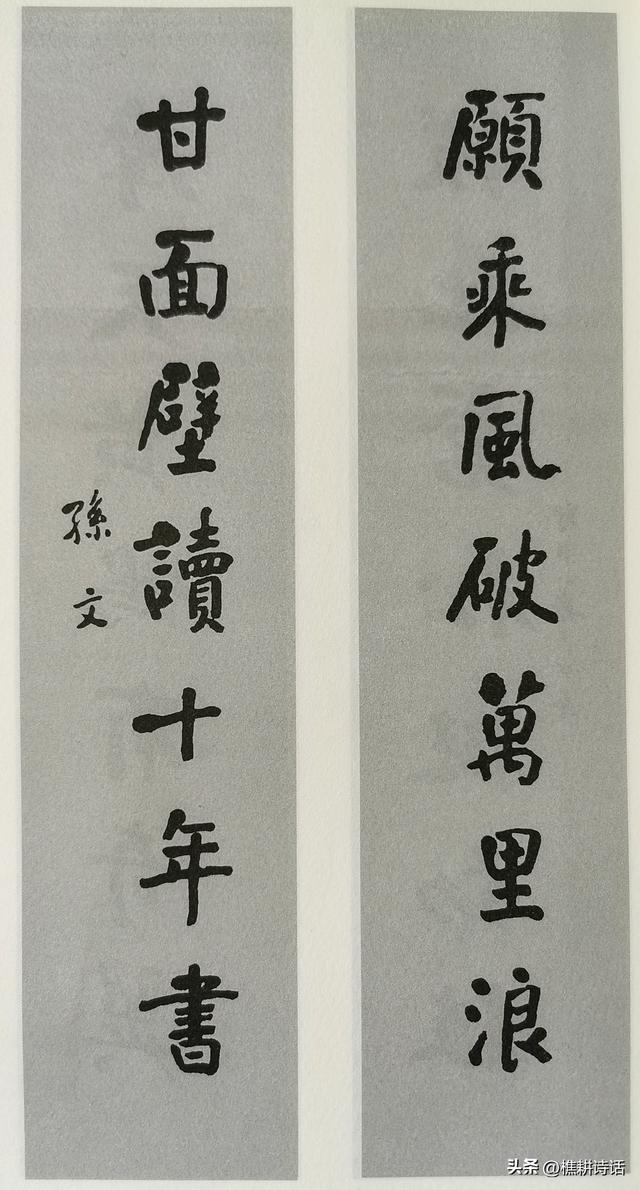 願乘風破萬里浪
甘面壁讀十年書
孫文
头条 @樵耕诗话